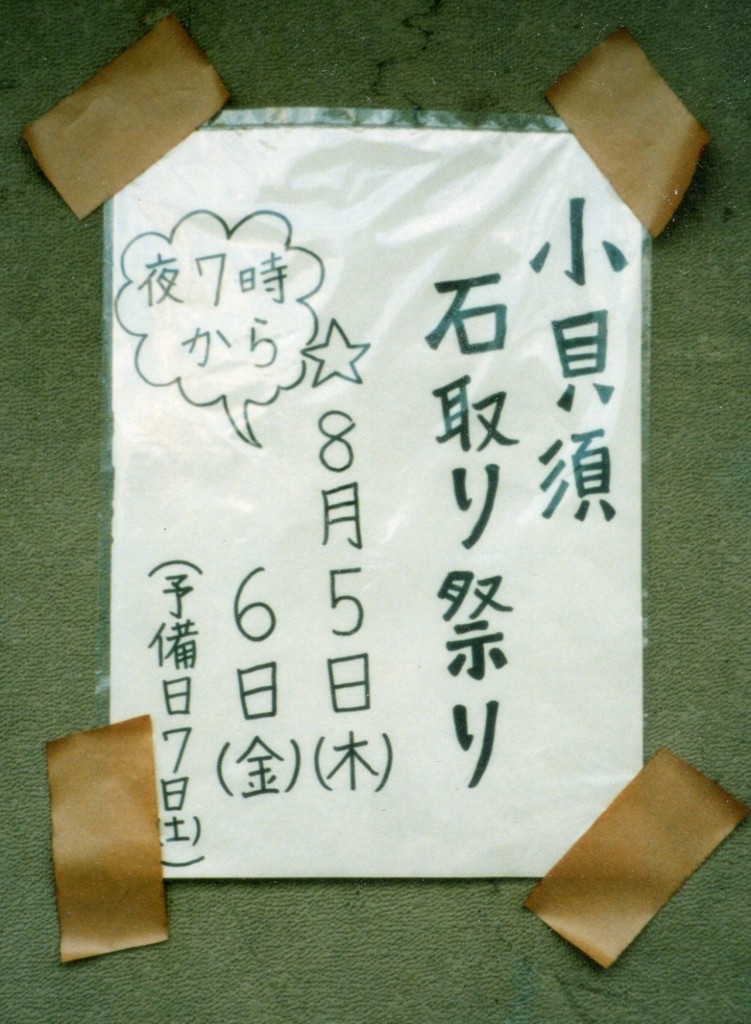 小貝須
石取り祭り
☆8月5日(木)
6日(金)
(予備日7日(土))
夜7時
から